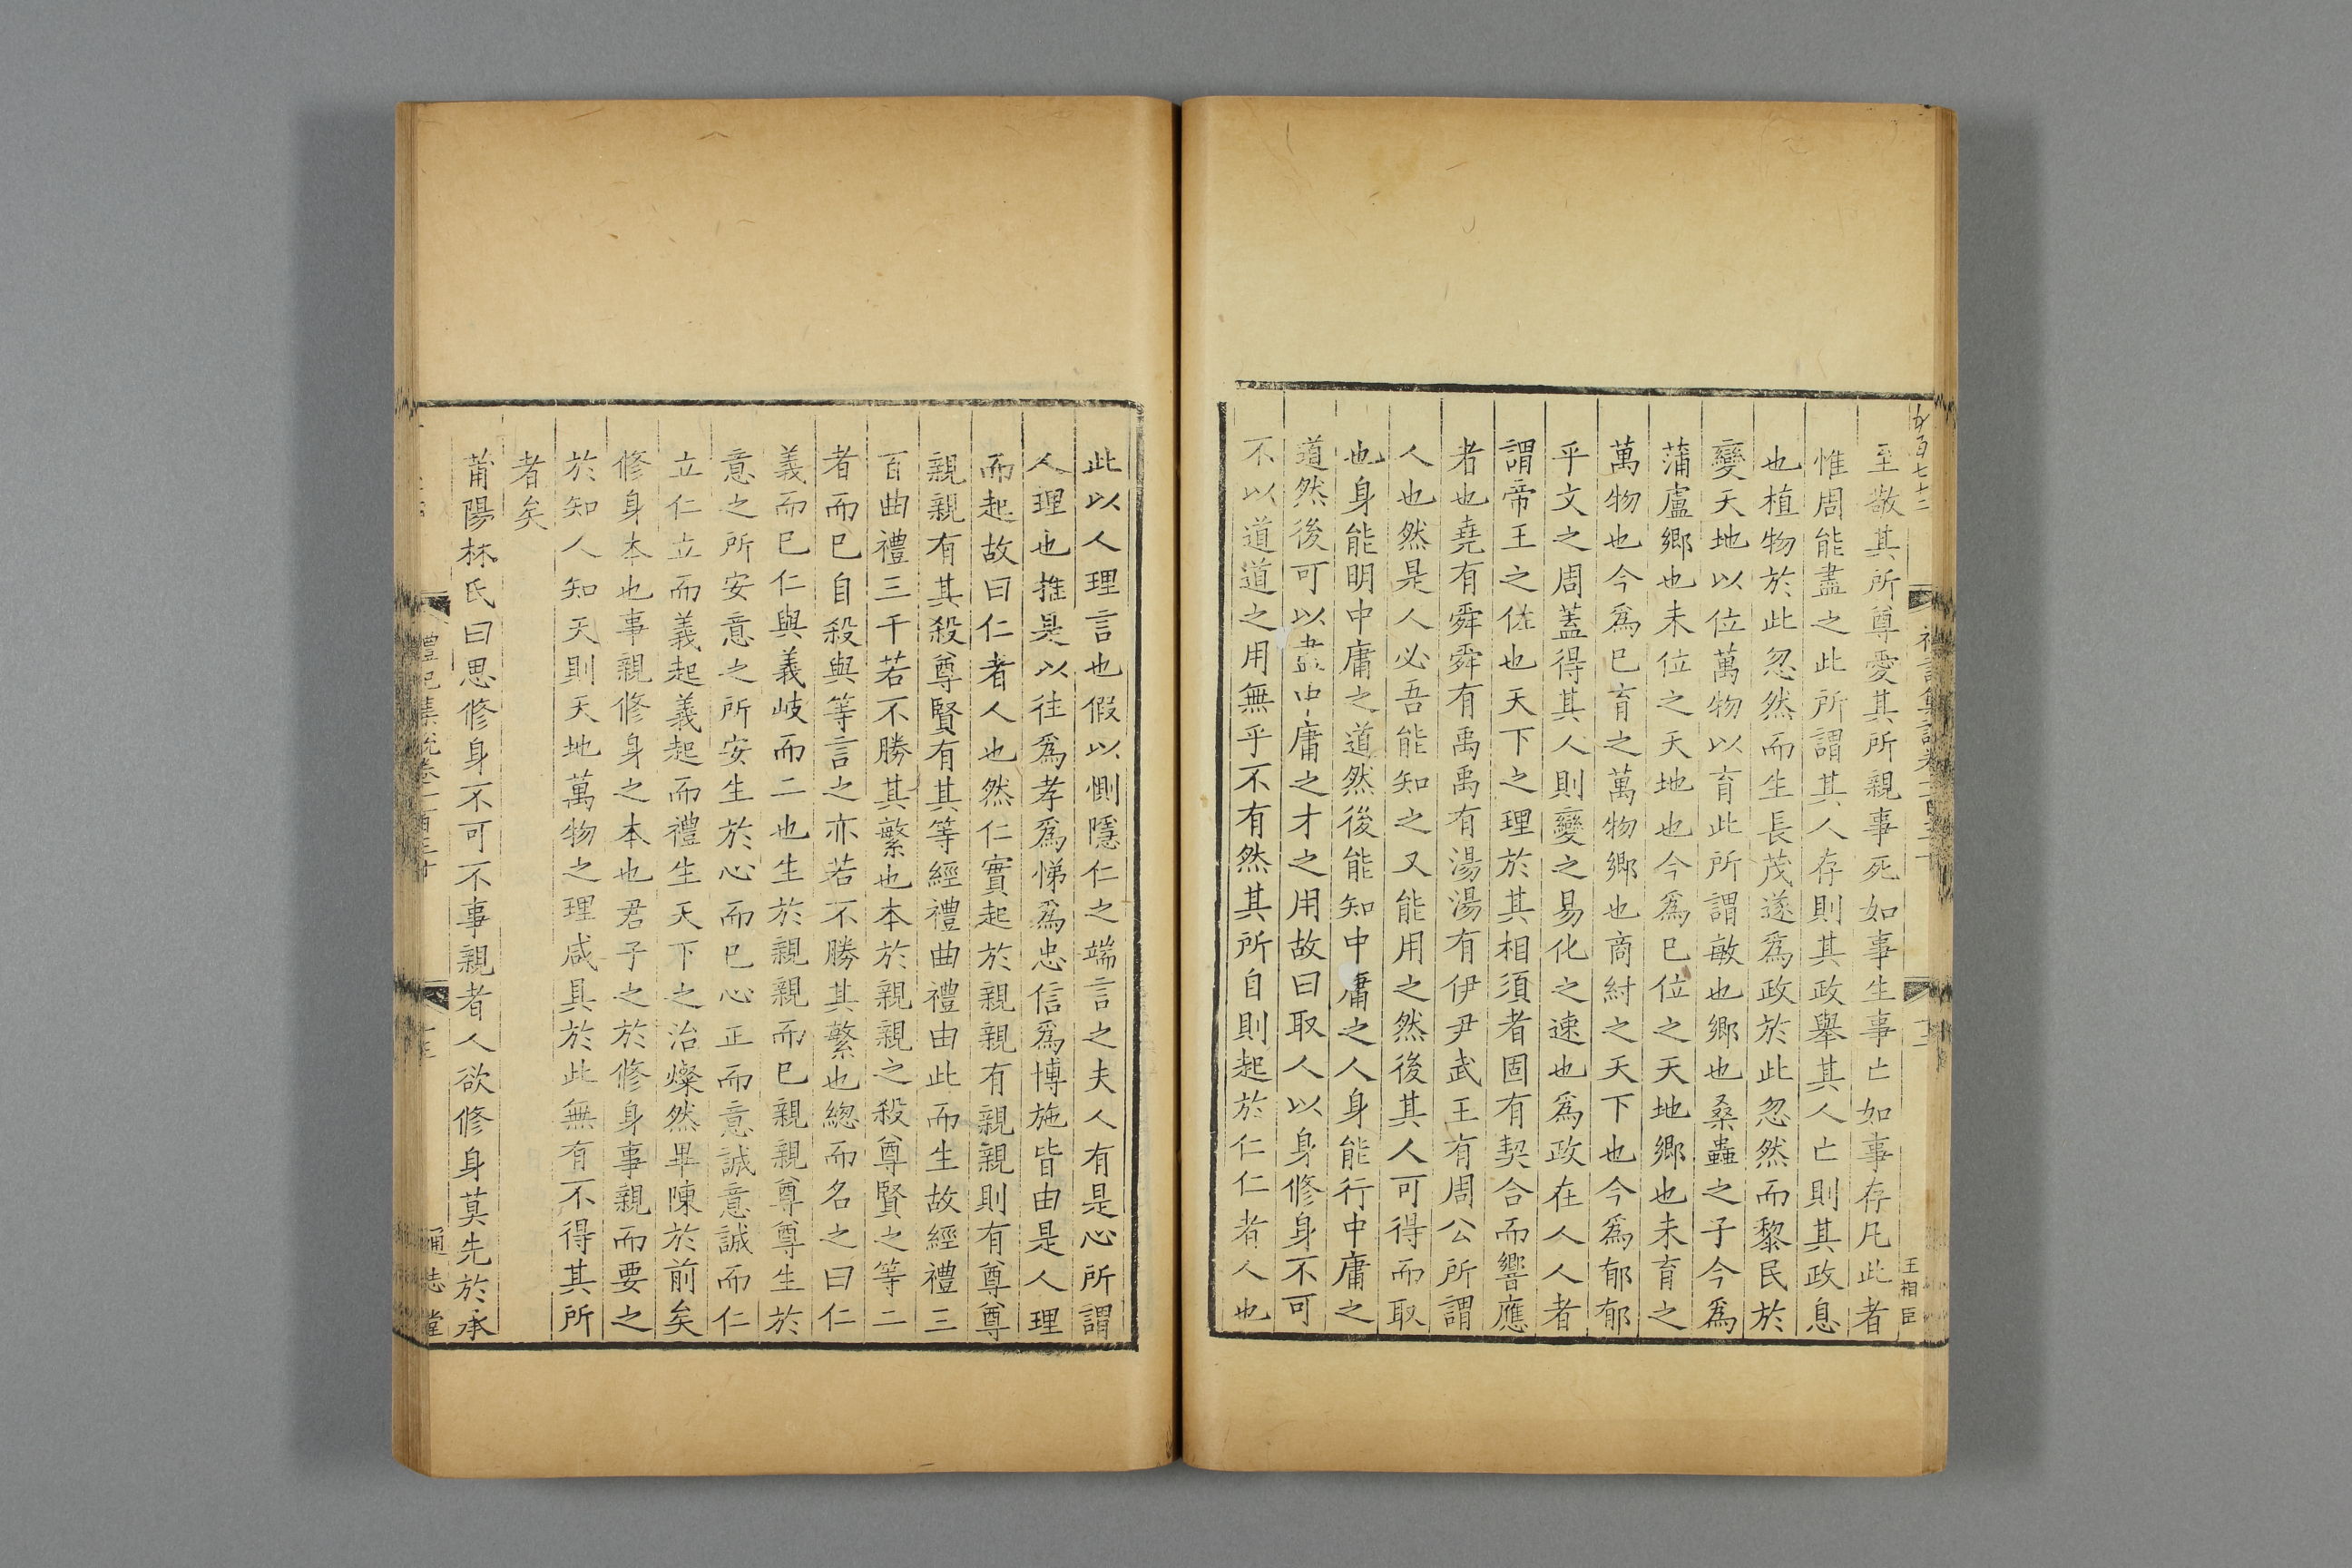 至敬其所尊愛其所親事死如事生事亡如事存凡此者
惟周能盡之此所謂其人存則其政舉其人亡則其政息
也植物於此忽然而生長茂遂爲政於此忽然而黎民於
變天地以位萬物以育此所謂敏也鄉也桑蟲之子今爲
蒲盧鄉也未位之天地也今爲已位之天地鄉也未育之
萬物也今爲已育之萬物鄉也商紂之天下也今爲郁郁
乎文之周蓋得其人則變之易化之速也爲政在人人者
謂帝王之佐也天下之理於其相須者固有契合而響應
者也堯有舜舜有禹禹有湯湯有伊尹武王有周公所謂
人也然是人必吾能知之又能用之然後其人可得而取
也身能明中庸之道然後能知中庸之人身能行中庸之
道然後可以盡中庸之才之用故曰取人以身修身不可
不以道道之用無乎不有然其所自則起於仁仁者人也
王相臣
此以人理言也假以惻隱仁之端言之夫人有是心所謂
人理也推是以往爲孝爲悌爲忠信爲博施皆由是人理
而起故曰仁者人也然仁實起於親親有親親則有尊尊
親親有其殺尊賢有其等經禮曲禮由此而生故經禮三
百曲禮三千若不勝其繁也本於親親之殺尊賢之等二
者而已自殺與等言之亦若不勝其繁也總而名之曰仁
義而已仁與義岐而二也生於親親而已親親尊尊生於
意之所安意之所安生於心而已心正而意誠意誠而仁
立仁立而義起義起而禮生天下之治燦然畢陳於前矣
修身本也事親修身之本也君子之於修身事親而要之
於知人知天則天地萬物之理咸具於此無有不得其所
者矣
莆陽林氏曰思修身不可不事親者人欲修身莫先於承
禮記集說卷一百三十
通志堂